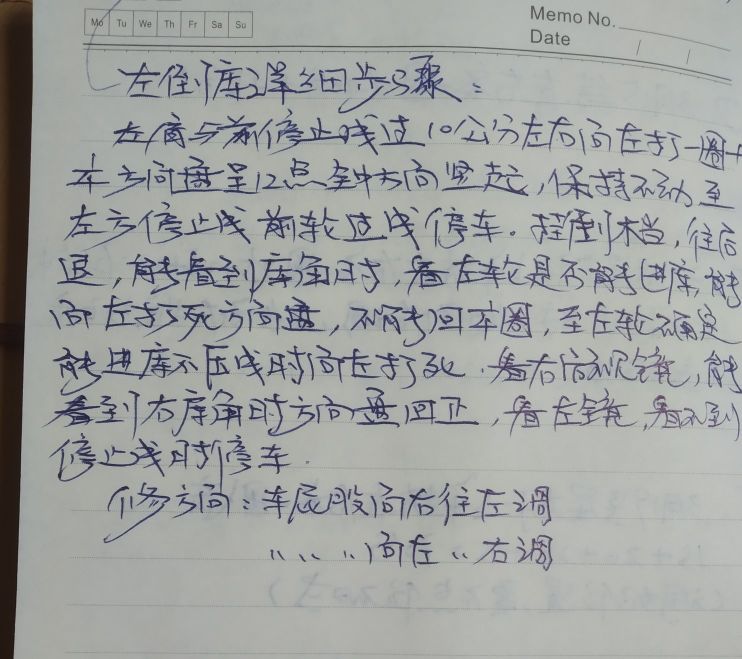 Mo Tu We Th Fr Sa Su
Memo No.
Date
左倒库详细步骤：
左肩与前停止线过10公分左右向左打一圈+
车方向盘呈12点钟方向竖起，保持不动至
左方停止线前轮过线停车．挂倒档，往后
退，能看到库角时，看左轮是否能进库，能
向左打死方向盘，不能回半圈，至左轮确定
能进库不压线时向左打死．看右后视镜，能
看到右库角时方向盘回正，看左镜，看不到
停止线时停车．
修方向：车屁股向右往左调
〃〃〃向左〃右调